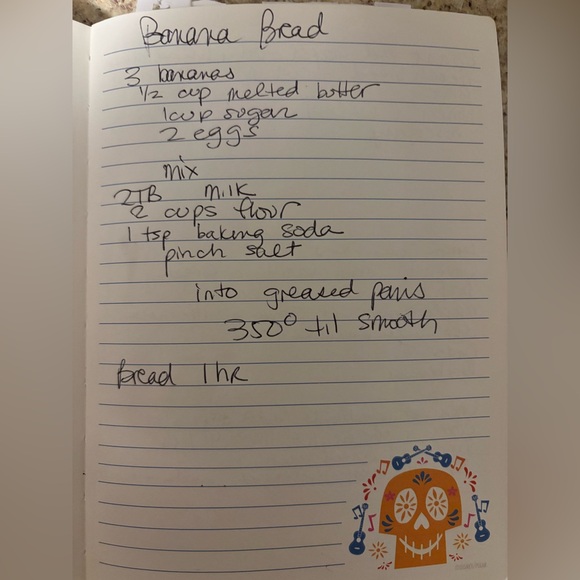 Banana Bread
3 bananas
1/2 cup melted butter
1 cup sugar
2 eggs
mix
2TB milk
2 cups flour
1 tsp baking soda
pinch salt
into greased pans
350° til smooth
Bread 1 hr